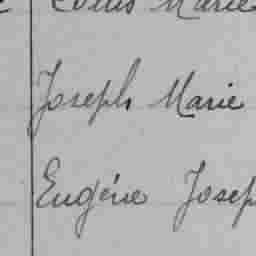 Louis Marie
Joseph Marie
Eugène Josep